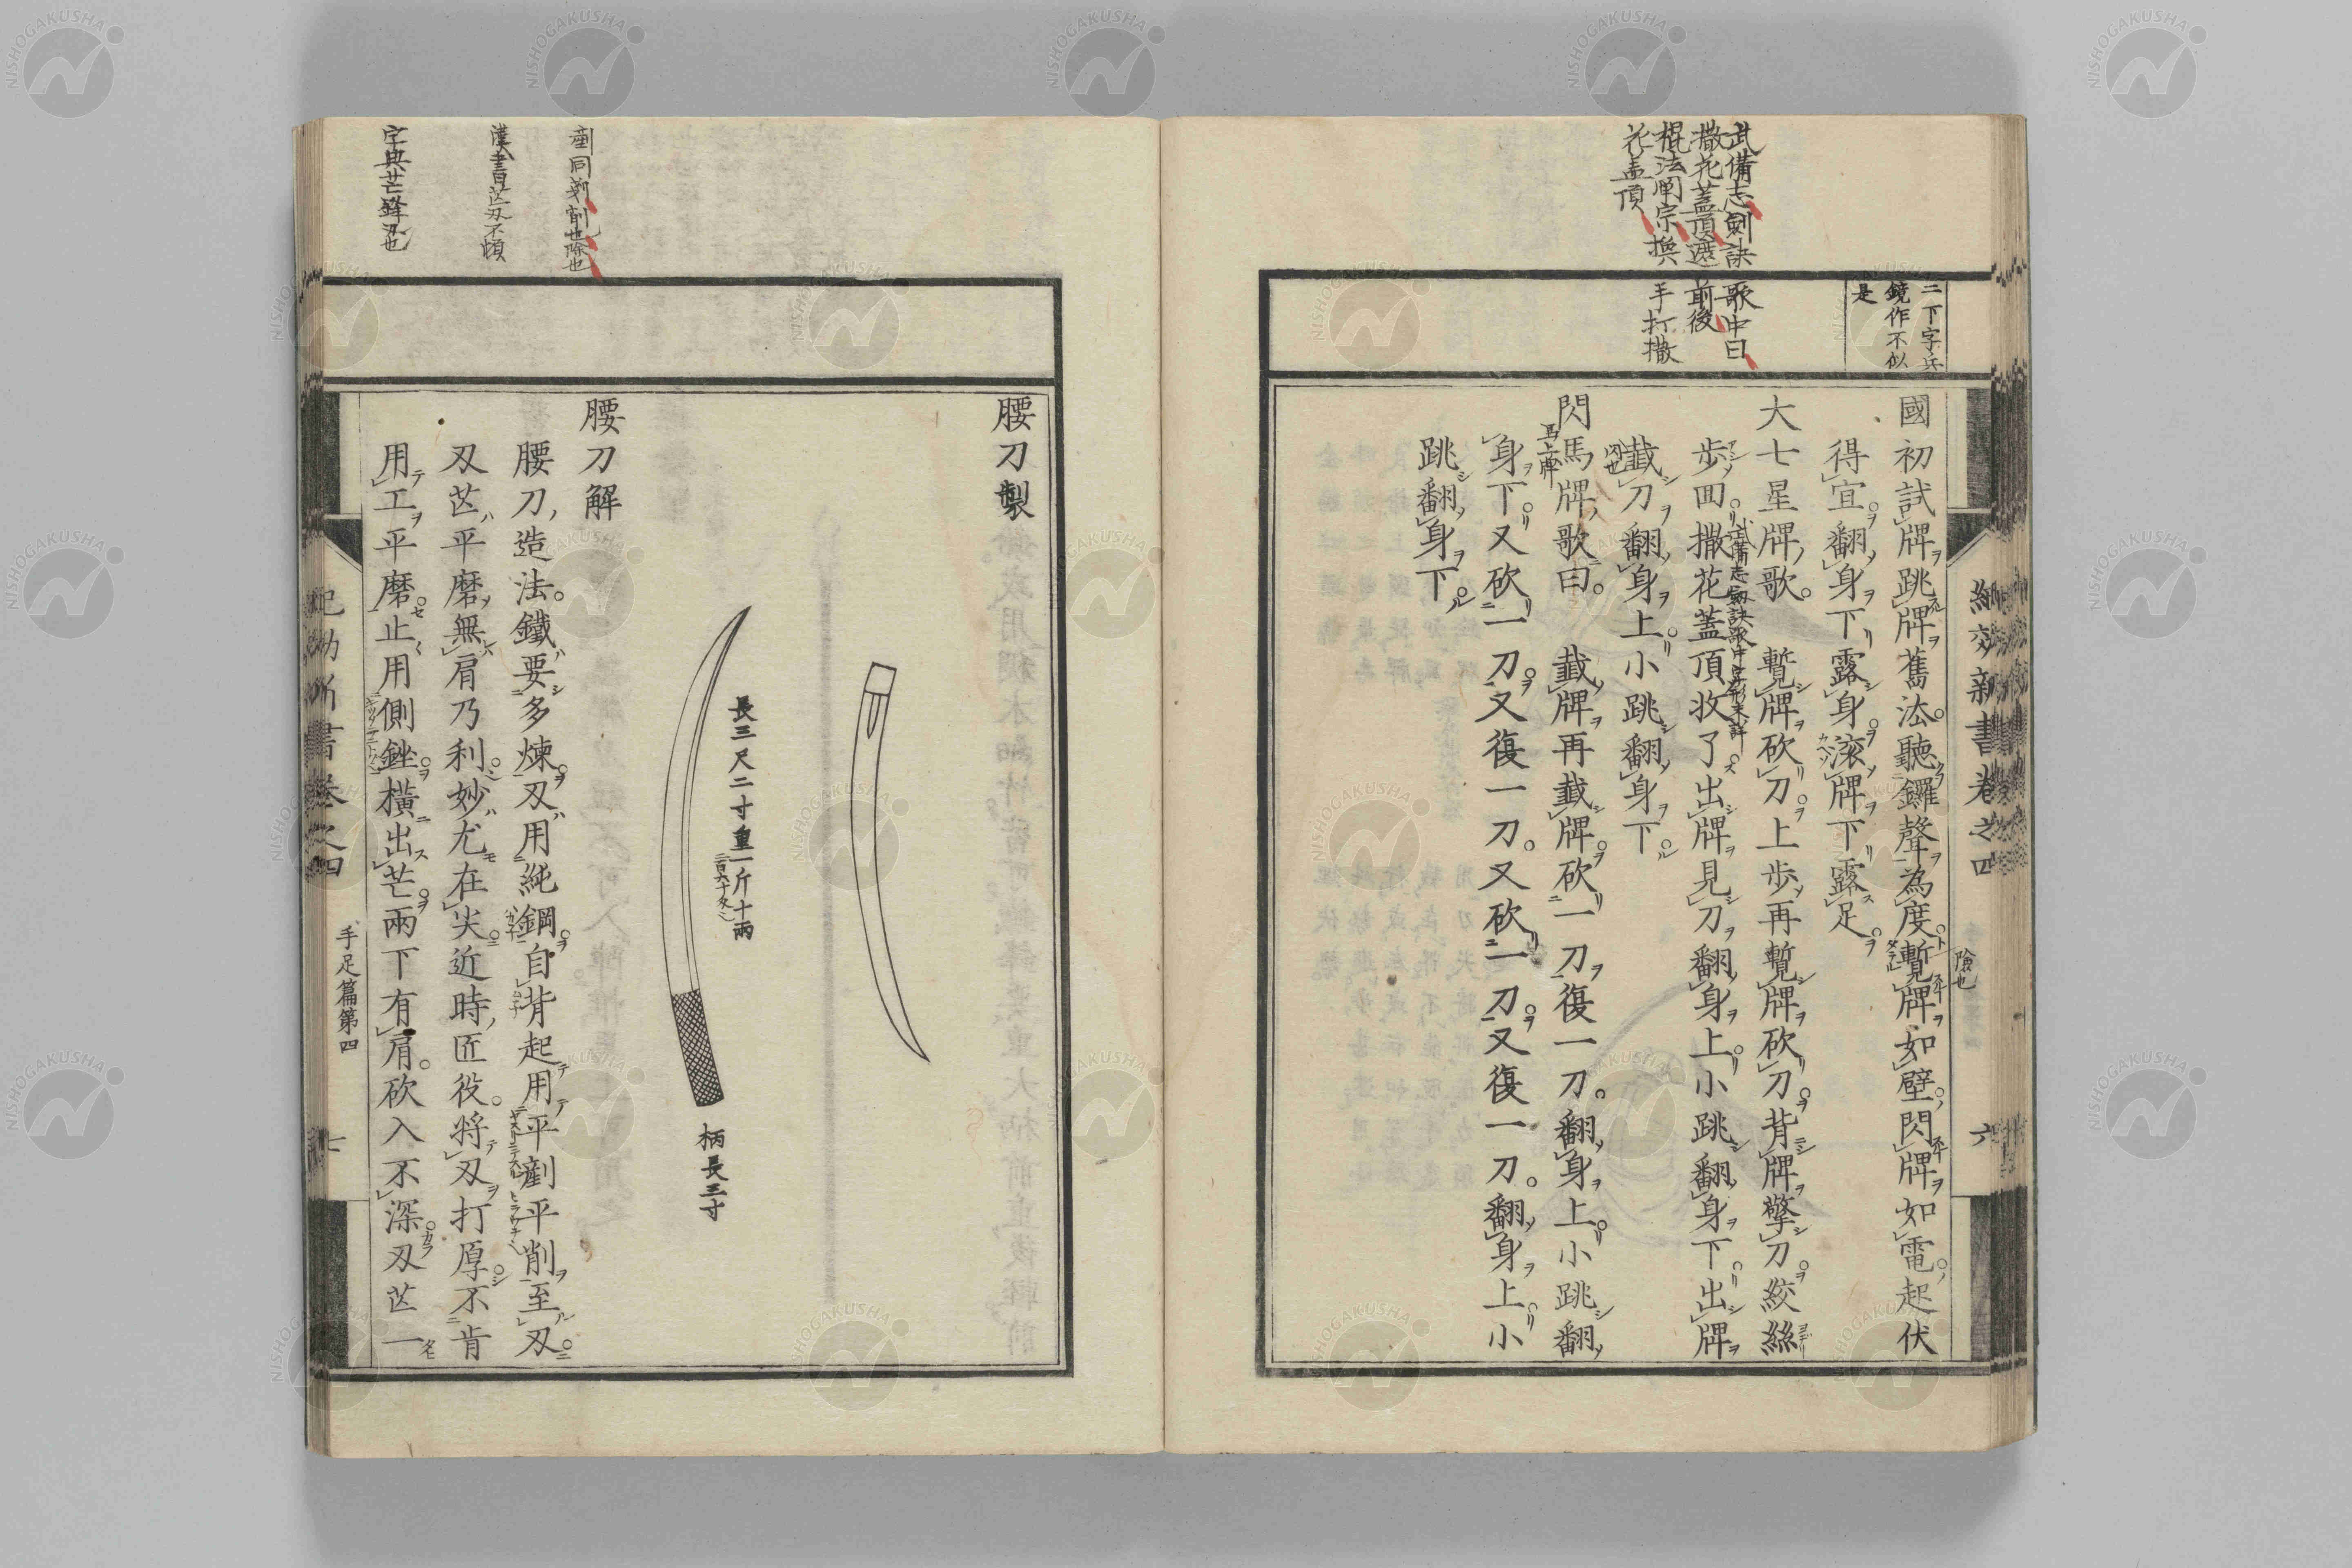 武備志劍訣歌中曰
撒花蓋頂遮前後
棍法闡宗換手打撒
花盖頂
二下字兵
鏡作不似
是
國初試牌跳牌舊法聽鑼聲為度蹔牌如壁閃牌如電起伏
險也
得宜翻身下露身滾牌下露足
大七星牌歌 蹔牌砍刀上步再蹔牌砍刀背牌擎刀絞絲
武備志劍訣歌中
步回撒花蓋頂收了出牌見刀翻身上小跳翻身下出牌
截刀翻身上小跳翻身下
閃馬牌歌曰 截牌再截牌砍一刀復一刀翻身上小跳翻
身下又砍一刀又復一刀又砍一刀又復一刀翻身上小
跳翻身下
紀効新書卷之四
六
腰刀製
長三尺二寸重一斤十兩
柄長三寸
腰刀解
腰刀造法鐵要多煉刃用純鋼自背起用平剷平削至刃
刃芒平磨無肩乃利妙尤在尖近時匠役將刃打厚不肯
用工平磨止用側銼橫出芒兩下有肩砍入不深刃芒一
漢書芒刃不頓
字典芒鋒刃也
紀効新書卷之四
手足篇第四
七
NISHOGAKUSHA